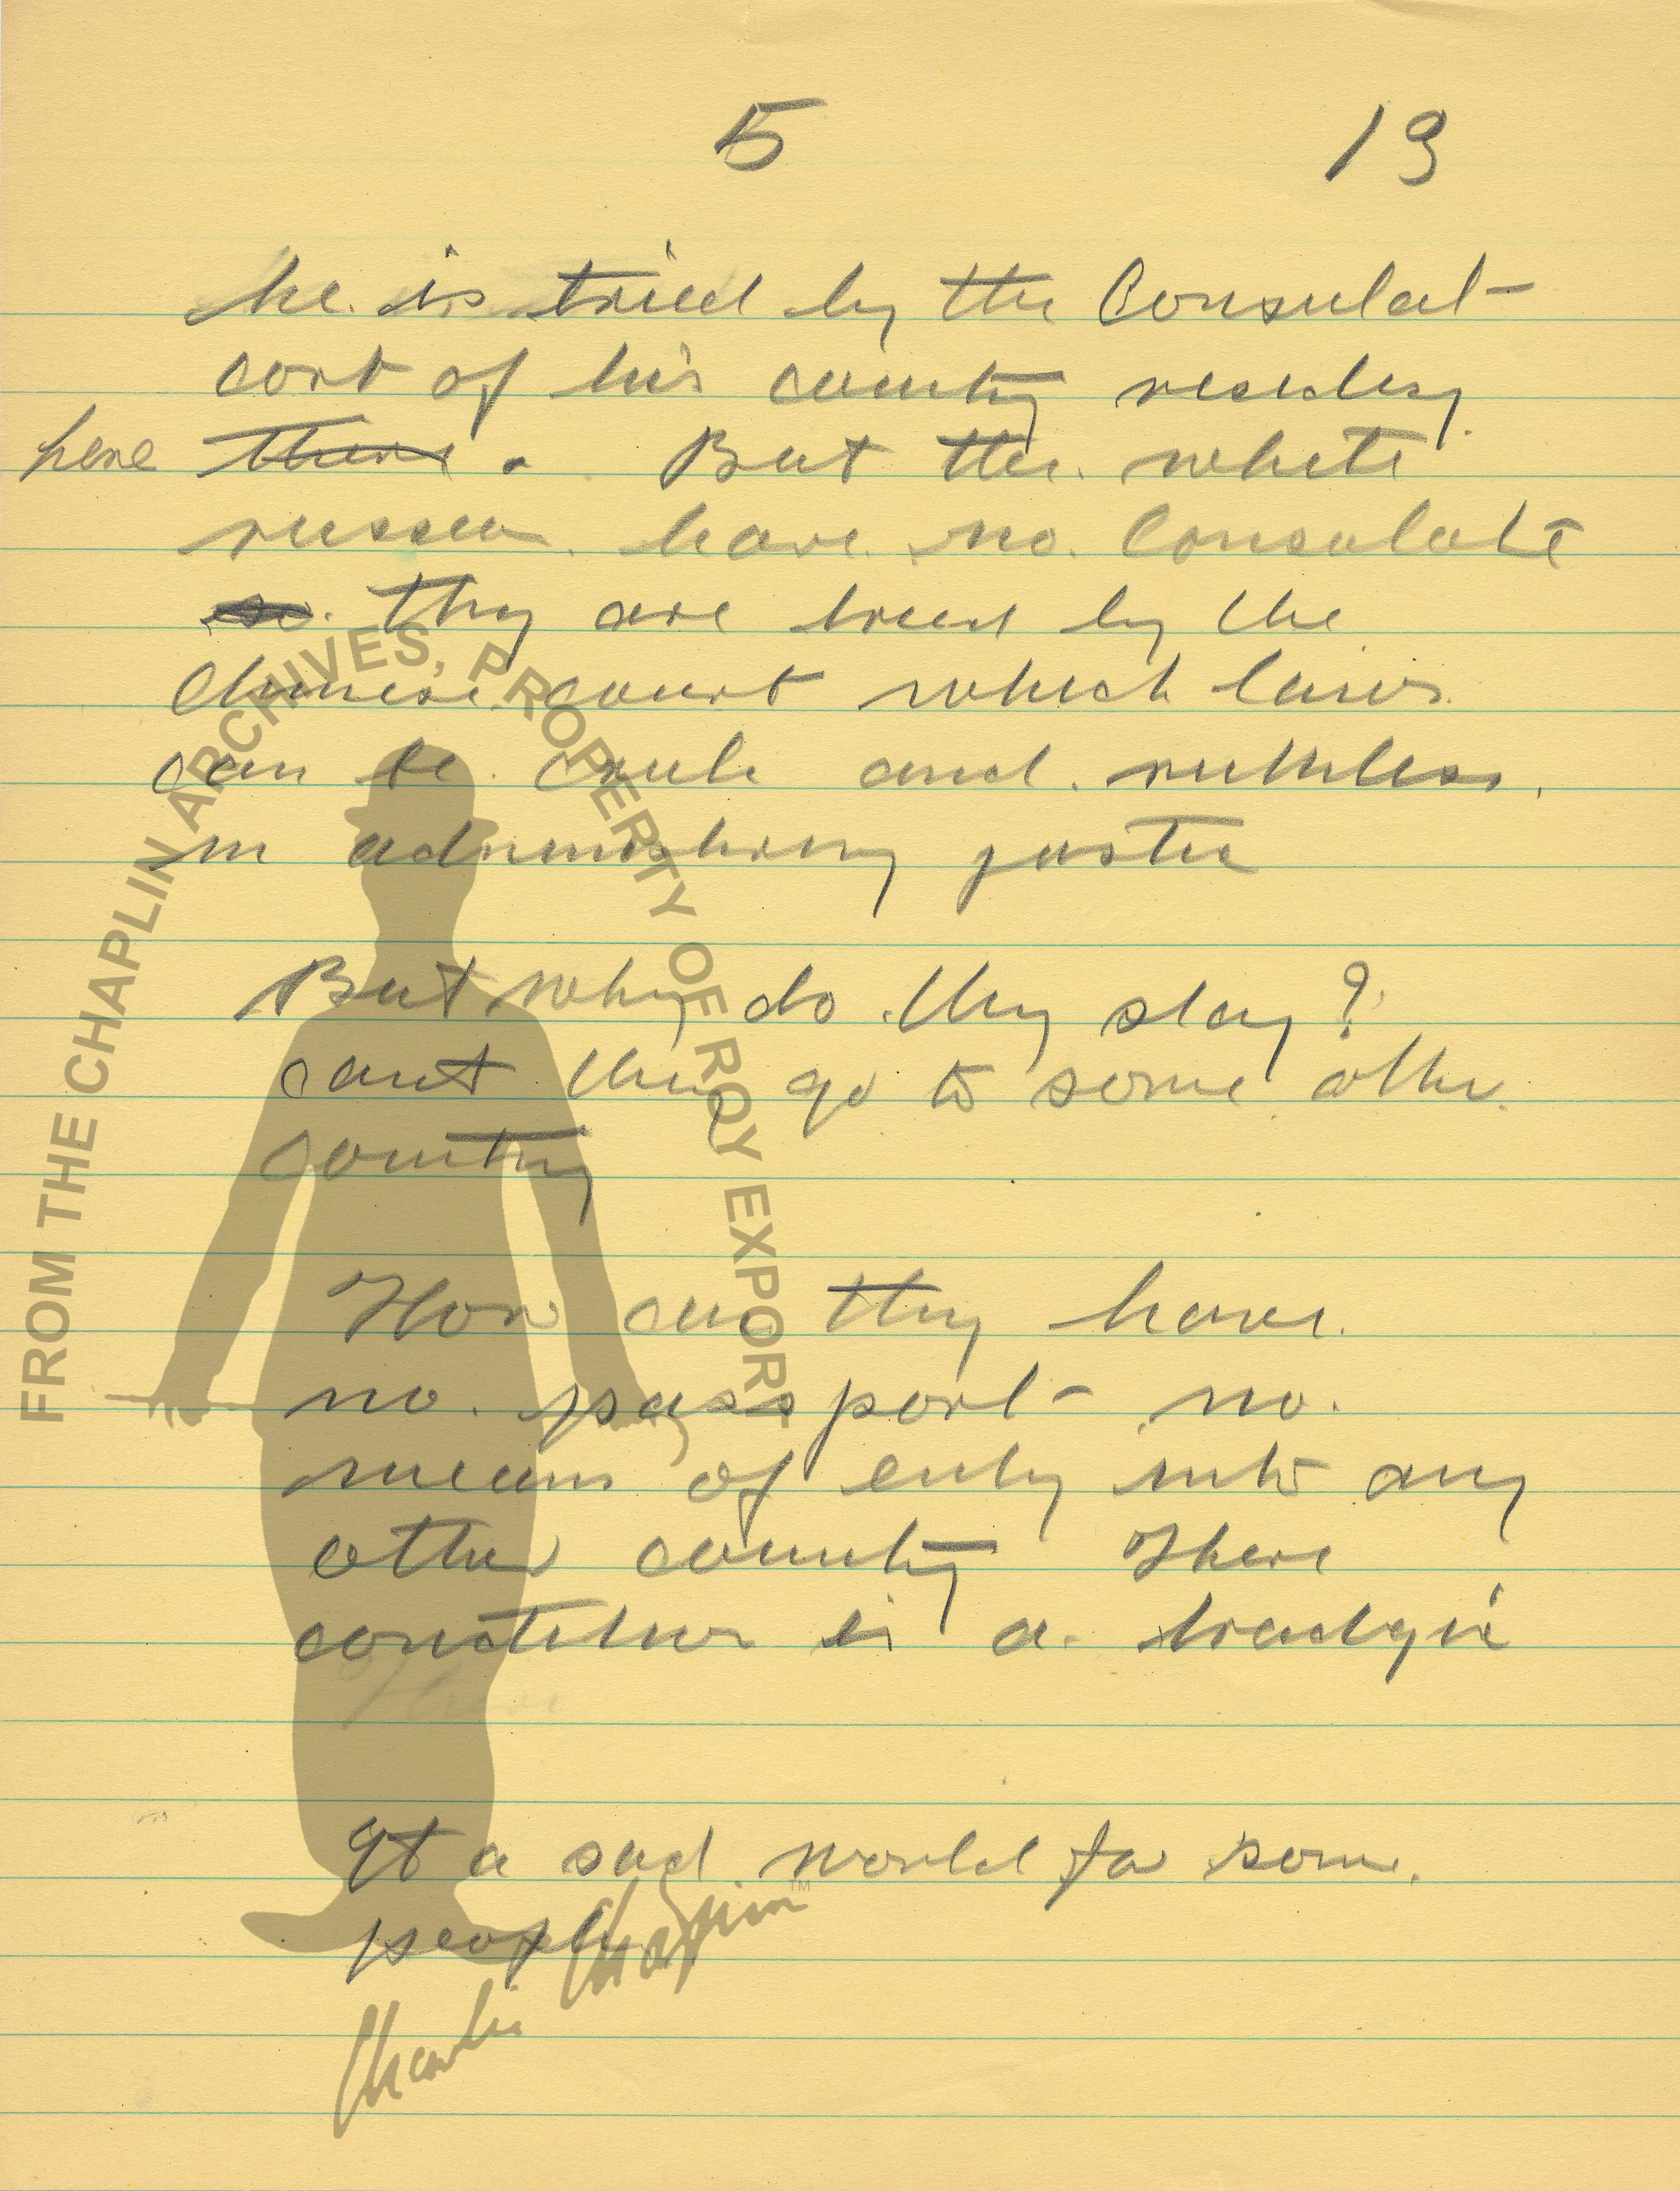 5 13
he is tried by the Consulat
cort of his country residing
here there. But the white
russian have no Consulate
so they are tried by the
Chinese court which laws
can be cruel and ruthless,
in administring justice
But why do they stay?
cant they go to some other
country
How can they have
no passport no
means of entry into any
other country There
constitur is a tradgic
It a sad world for some
people
FROM THE CHAPLIN ARCHIVES, PROPERTY OF ROY EXPORT
Charlie Chaplin™